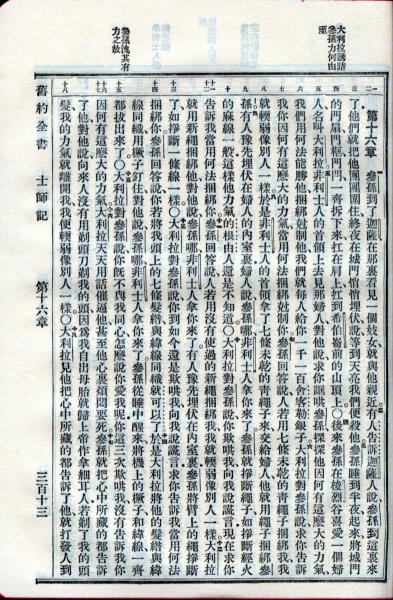 大利拉誘詰
參孫力何由
至
參孫洩其有
力之故
第十六章 參孫到了迦薩在那裏看見一個妓女就與他親近有人告訴迦薩人說參孫到這裏來
了他們就把他團團圍住終夜在城門悄悄埋伏說等到天亮我們便殺他參孫睡到半夜起來將城門
的門扇門框門閂一齊拆下來扛在肩上扛到希伯崙前的山頂上〇後來參孫在梭烈谷喜愛一個婦
人名叫大利拉非利士人的首領上去見那婦人對他說求你誆哄參孫探探他因何有這麼大的力氣
我們用何法能勝他捆綁尅制他我們就每人給你一千一百舍客勒銀子大利拉對參孫說求你告訴
我你因何有這麼大的力氣當用何法捆綁尅制你參孫回答說人若用七條未乾的青繩子捆綁我我
就輭弱像別人一樣於是非利士人的首領拿了七條未乾的繩子來交給婦人他就用繩子捆綁參
孫有人豫先埋伏在婦人的內室裏婦人說參孫哪非利士人拿你來了參孫就掙斷繩子如掙斷經火
的麻線一般這樣他力氣的根由人還是不知道〇大利拉對參孫說你欺哄我向我說謊言現在求你
告訴我當用何法捆綁你參孫回答說人若用沒有使過的新繩捆綁我我就輭弱像別人一樣大利拉
就用新繩捆綁他對他說參孫哪非利士人拿你來了有人豫先埋伏在內室裏參孫將臂上的繩掙斷
了如掙斷一條線一樣〇大利拉對參孫說你到如今還是欺哄我向我說謊言求你告訴我當用何法
捆綁你參孫回答說你若將我頭上的七條髮綹與緯線同織就可以了於是大利拉將他的髮綹與緯
線同織用橛子釘住對他說參孫哪非利士人拿你來了參孫從睡中醒來將機上的橛子和緯線一齊
都拔出來了〇大利拉對參孫說你既不與我同心怎麼說你愛我呢你這三次欺哄我沒有告訴我你
因何有這麼大的力氣大利拉天天用話催逼他甚至他心裏煩悶要死參孫就把心中所藏的都告訴
了他對他說向來人沒有用剃頭刀剃我的頭因爲我自出母胎就歸上帝作拿細耳人若剃了我的頭
髮我的力氣就離開我我便輭弱像別人一樣〇大利拉見他把心中所藏的都告訴了他就打發人到
舊約全書 士師記 第十六章 三百十三